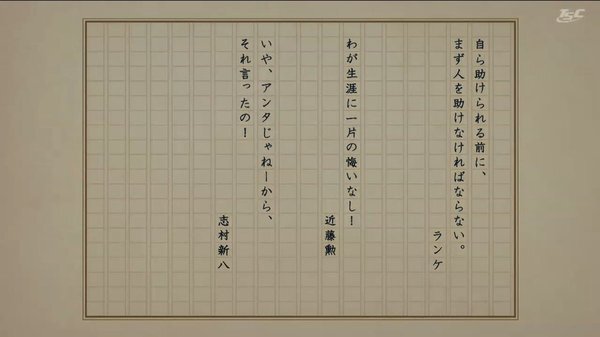 自ら助けられる前に、
まず人を助けなければならない。
ランケ
わが生涯に一片の悔いなし！
近藤勲
いや、アンタじゃねーから、
それ言ったの！
志村新八